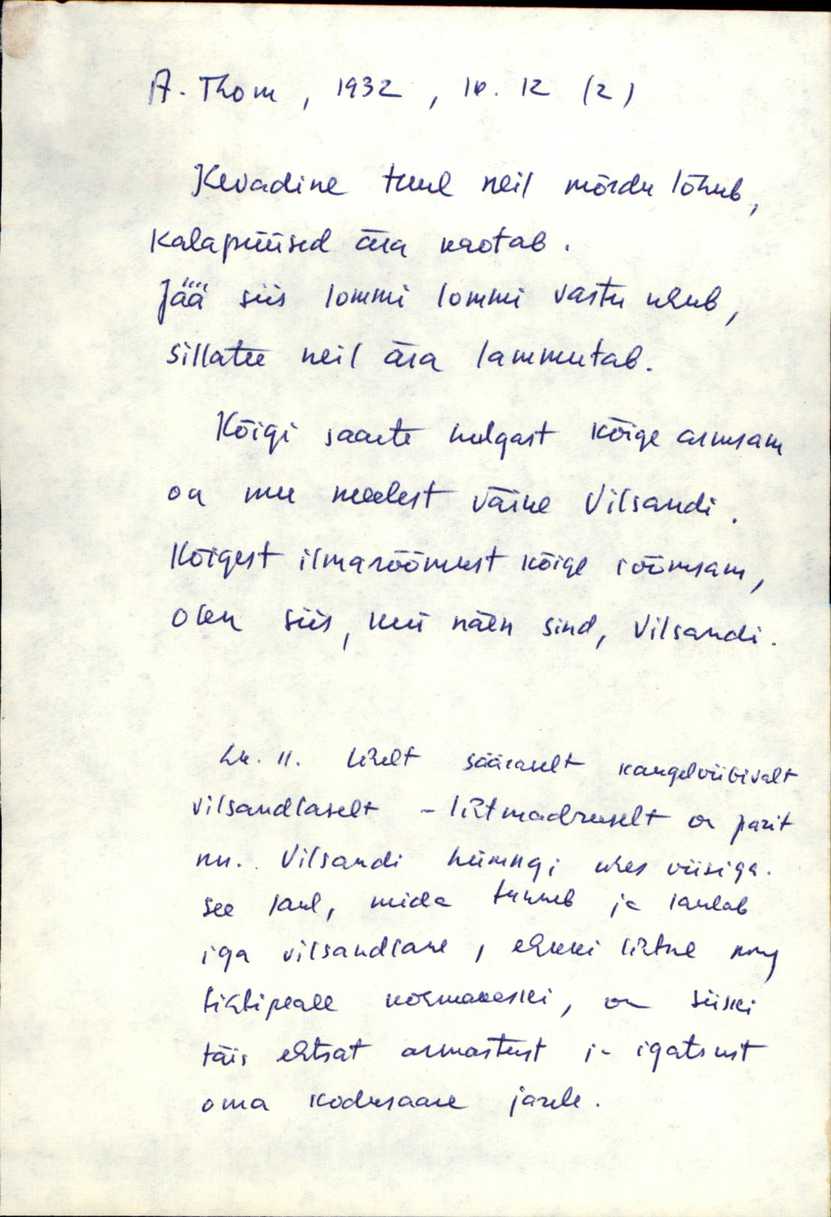 A. Thom, 1932, 10. 12 (2)
Kevadine tuul neil mõrdu lõhub,
kalapüüsed ära kaotab.
Jää siis lommi lommi vastu uhub,
sillatee neil ära lammutab.
Kõigi saarte hulgast kõige armsam
on mu meelest väine Vilsandi.
Kõigest ilmarõõmust kõige rõõmsam,
olen siis, kui näen sind, Vilsandi.
Lk. 11. Ühelt sääraselt kaugelviibivalt
vilsandlaselt - lihtmadruselt on pärit
nn. Vilsandi hümngi ühes viisiga.
See laul, mida tunneb ja laulab
iga vilsandlane, ehkki lihtne ning
tihtipeale, on siiski
täis ehtsat armastust ja igatsust
oma kodusaare järele.